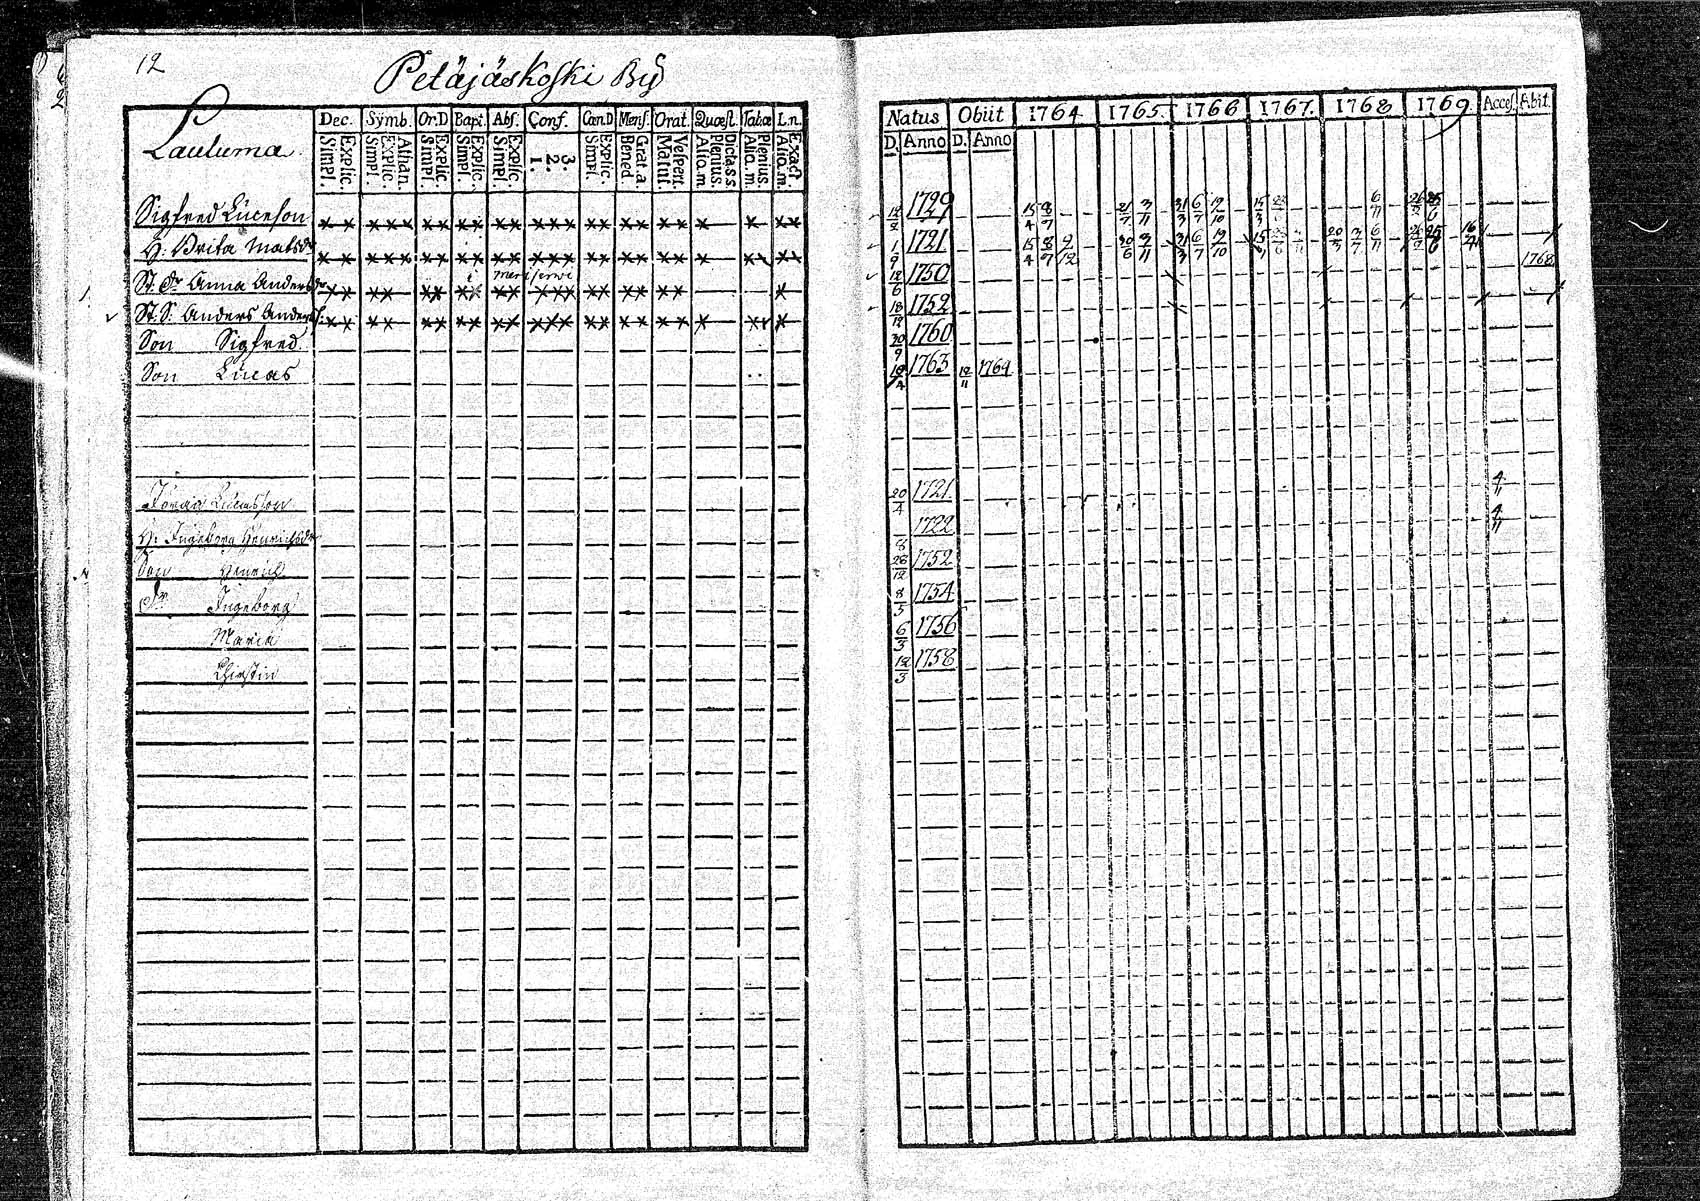 12
Petäjäskoski By
Lauluma
Dec. Symb. Or.D Bapt. Abs. Conf. Can.D Mens. Orat. Quæst. Tabæ L.n.
Simpl. Explic. Simpl. Explic. Athan. Simpl. Explic. Simpl. Explic. Simpl. Explic. 1. 2. 3. Simpl. Explic. Bened. Grat.a. Matut. Vespert. Alio.m Plenius. Dicta.s.s Alio.m. Plenius. Alio.m. Exact.
Natus Obiit 1764 1765 1766 1767. 1768 1769. Acces. Abit.
D. Anno D. Anno
Sigfred Luceson 12/2 1729 15/4 8/7 21/7 3/11 31/3 6/7 19/10 15/3 6/11 26/2 25/6
H: Brita Matsdr 1/9 1721 15/4 8/7 9/12 30/6 31/3 6/7 19/10 20/3 3/7 6/11 26/2 25/6
St. dr Anna Andersdr 12/6 1750 1768
St. S. Anders Anders 18/12 1752
Son Sigfred 30/9 1760
Son Lucas 1763 12/11 1769
Lucasson 20/4 1721 4/11
H: Ingeborg Henrichsdr 1722 4/11
Son Henrich 28/12 1752
Dr Ingeborg 8/5 1754
Maria 6/3 1756
Christin 12/3 1758